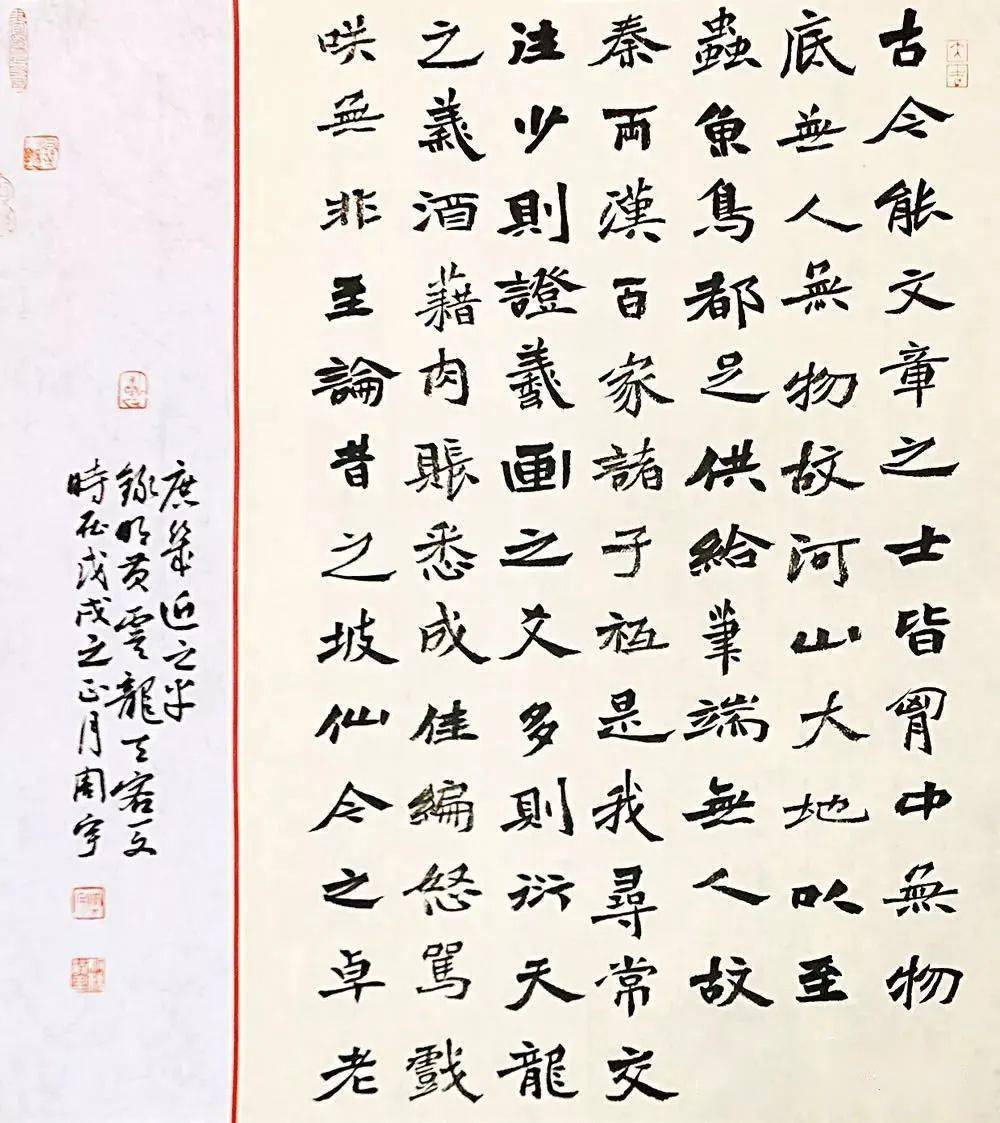 古今能文章之士皆胷中無物
底無人無物故河山大地以至
蟲魚鳥都足供給筆端無人故
秦兩漢百家諸子秪是我尋常交
注少則證羲画之爻多則衍天龍
之義酒藉肉賬悉成佳編怒罵戲
咲無非至論昔之坡仙今之卓老
庶幾近之半
錄明黃雲龍天客一文
時在戊戌之正月周宇